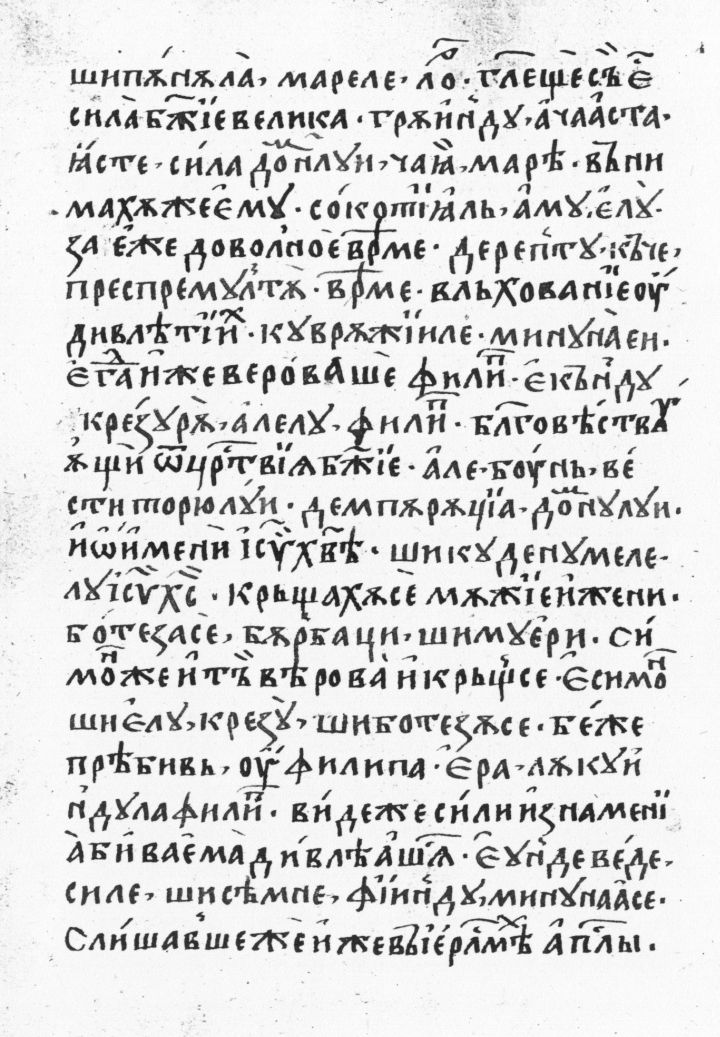 шипѫ́нѫла̀, мареле, ло̑р · гл҃ѧщѐсъ є҆сть
сила бж҃їе велика · грѫи́н҆дꙋ, а҆чаа҆ста ·
ꙗ҆сте, си́ла до́мнꙋлꙋи, чаꙗ҆, марѣ · въ ни
махѫже е҆мꙋ · со́котїꙗ҆ль, а҆мꙋ, є҆лꙋ ·
за є҆же доволное врⷨме · дерепⸯтꙋ, къче,
преспремꙋлтѫ · врⷨме · влъхованїе оу҆
дивлѣтїиⷯ · кꙋврѫжїиле · минꙋна̀еи ·
єгⷣа и҆же веро́ваше филиⷫ · є҆кън҆дꙋ
крезꙋрѫ̀, а҆лелꙋ, филиⷫ · бл҃говѣ́ствꙋ
ѫщи ѿ црⷭ҇твїѧ бж҃їе · а҆ле, боу́нь, ве
сти торюлꙋ́и · демпѫрѫцїа, до́мнꙋлꙋи ·
и҆ ѡ҆ и҆мени і҆сꙋ҃ хв҃ѣ · шикꙋ денꙋмеле ·
лꙋ і҆сꙋ҃с хс҃ · крьщахѫсѐ мѫжїе и҆ жени ·
бо́тезасѐ, бѫрбаци, шимꙋе́ри · си́
моⷩже и҆ тъ вѣ́рова̀ и҆ крьщ҆се · є҆симоⷩ
ши є҆лꙋ, крезꙋ̀, шиботезѫсе · бе́же
прѣ́бивь, оу҆ филипа · є҆ра, лѫкꙋи́
н҆дꙋла филиⷫ · ви́деже си́ли и҆ знаменїѧ
а҆ би́ваема̀ ди́влѣа҆шⷭ҇ѧ · є҆ꙋн҆де ве́де,
силе, шисѣмне, фїин҆дꙋ, минꙋнаа҆се ·
Сли́шавшеже и҆же въ і҆ерⷭ҇лимⷯѣ а҆пⷭ҇лы ·